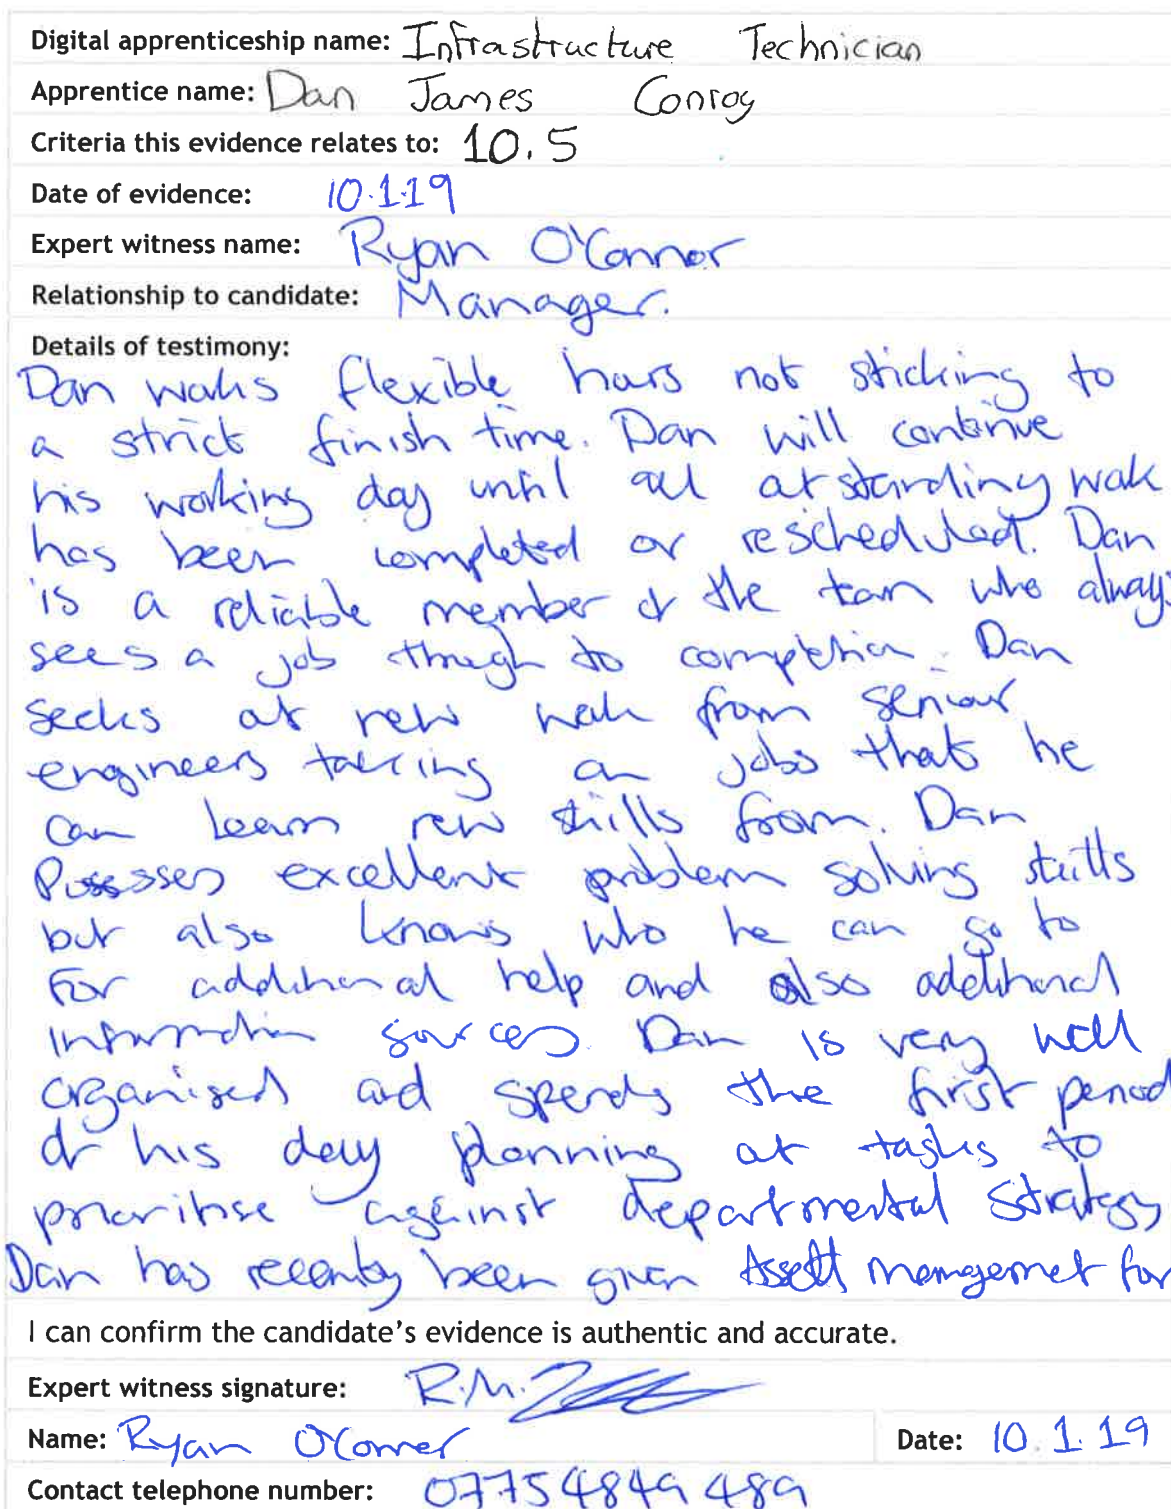 Digital apprenticeship name: Infrastructure Technician
Apprentice name: Dan James Conroy
Criteria this evidence relates to: 10.5
Date of evidence: 10.1.19
Expert witness name: Ryan O'Connor
Relationship to candidate: Manager.
Details of testimony:
Dan works flexible hours not sticking to
a strict finish time. Dan will continue
his working day until all outstanding work
has been completed or rescheduled. Dan
is a reliable member of the team who always
sees a job through to completion. Dan
seeks out new work from senior
engineers taking on jobs that he
can learn new skills from. Dan
Possesses excellent problem solving skills
but also knows who he can go to
For additional help and also additional
Information sources. Dan is very well
organised and spends the first period
of his day planning out tasks to
prioritise against departmental strategy
Dan has recently been given Assett management for
I can confirm the candidate's evidence is authentic and accurate.
Expert witness signature: R.M.
Name: Ryan O'Connor Date: 10.1.19
Contact telephone number: 07754849489